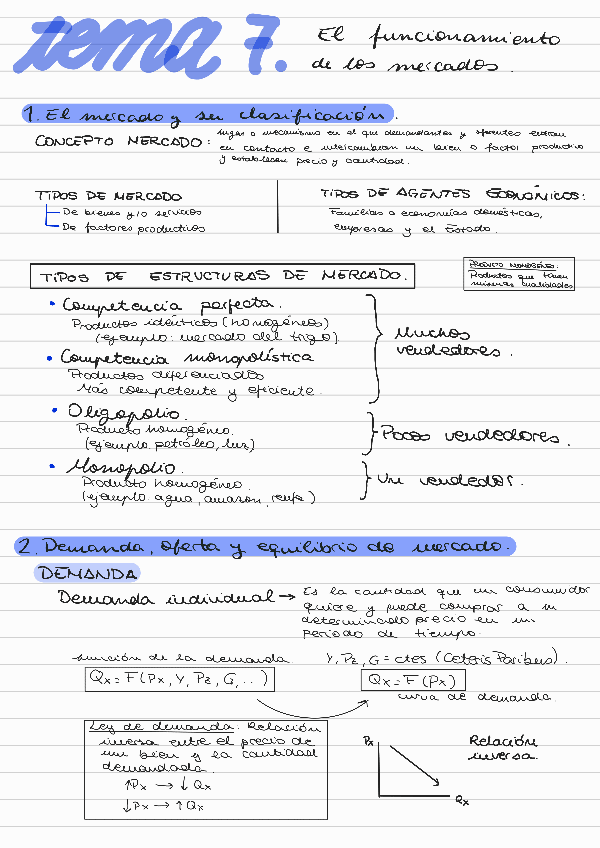 tema 7. El funcionamiento
de los mercados.
1. El mercado y su clasificación.
CONCEPTO MERCADO: lugar o mecanismo en el que demandantes y oferentes entran
en contacto e intercambian un bien o factor productivo
y establecen precio y cantidad.
TIPOS DE MERCADO
De bienes y/o servicios
De factores productivos
TIPOS DE AGENTES ECONÓMICOS:
Familias o economías domésticas,
empresas y el Estado.
TIPOS DE ESTRUCTURAS DE MERCADO.
PRODUCTO HOMOGÉNEO:
Productos que tienen
mismas cualidades
• Competencia perfecta.
Productos idénticos (homogéneos)
(ejemplo: mercado del trigo)
• Competencia monopolística
Productos diferenciados
Más competente y eficiente.
Muchos
vendedores.
• Oligopolio.
Producto homogéneo.
(ejemplo. petróleo, luz)
Pocos vendedores.
• Monopolio.
Producto homogéneo.
(ejemplo. agua, amazon, renfe)
Un vendedor.
2. Demanda, oferta y equilibrio de mercado.
DEMANDA
Demanda individual → Es la cantidad que un consumidor
quiere y puede comprar a un
determinado precio en un
periodo de tiempo.
función de la demanda
Qx = F(Px, Y, Pz, G, ...)
Y, Pz, G = ctes (Ceteris Paribus).
Qx = F(Px)
curva de demanda.
Ley de demanda. Relación
inversa entre el precio de
un bien y la cantidad
demandada.
↑Px → ↓Qx
↓Px → ↑Qx
Px
Qx
Relación
inversa.